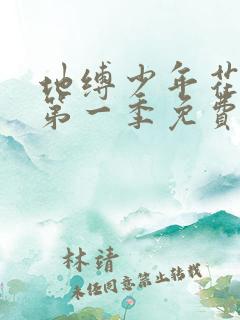 地缚少年花
第一季免費
林靖
未经同意禁止转载